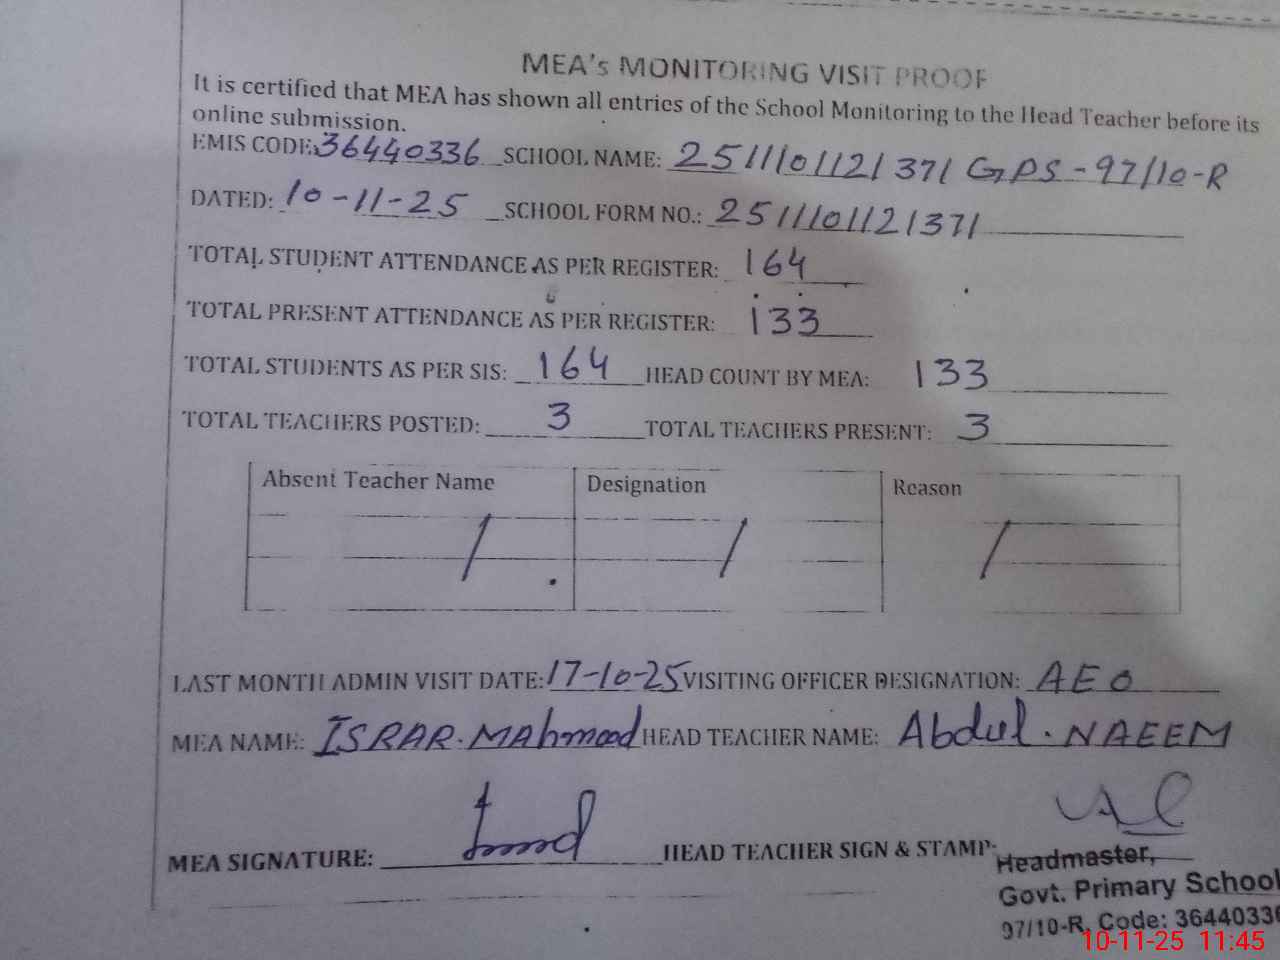 MEA's MONITORING VISIT PROOF
It is certified that MEA has shown all entries of the School Monitoring to the Head Teacher before its
online submission.
EMIS CODE: 36440336 SCHOOL NAME: 2511101121371 GPS-97/10-R
DATED: 10-11-25 SCHOOL FORM NO.: 2511101121371
TOTAL STUDENT ATTENDANCE AS PER REGISTER: 164
TOTAL PRESENT ATTENDANCE AS PER REGISTER: 133
TOTAL STUDENTS AS PER SIS: 164 HEAD COUNT BY MEA: 133
TOTAL TEACHERS POSTED: 3 TOTAL TEACHERS PRESENT: 3
Absent Teacher Name Designation Reason
/ / /
LAST MONTH ADMIN VISIT DATE: 17-10-25 VISITING OFFICER DESIGNATION: AEO
MEA NAME: ISRAR. MAhmood HEAD TEACHER NAME: Abdul. NAEEM
MEA SIGNATURE: HEAD TEACHER SIGN & STAMP:
Headmaster,
Govt. Primary School
97/10-R, Code: 36440336
10-11-25 11:45